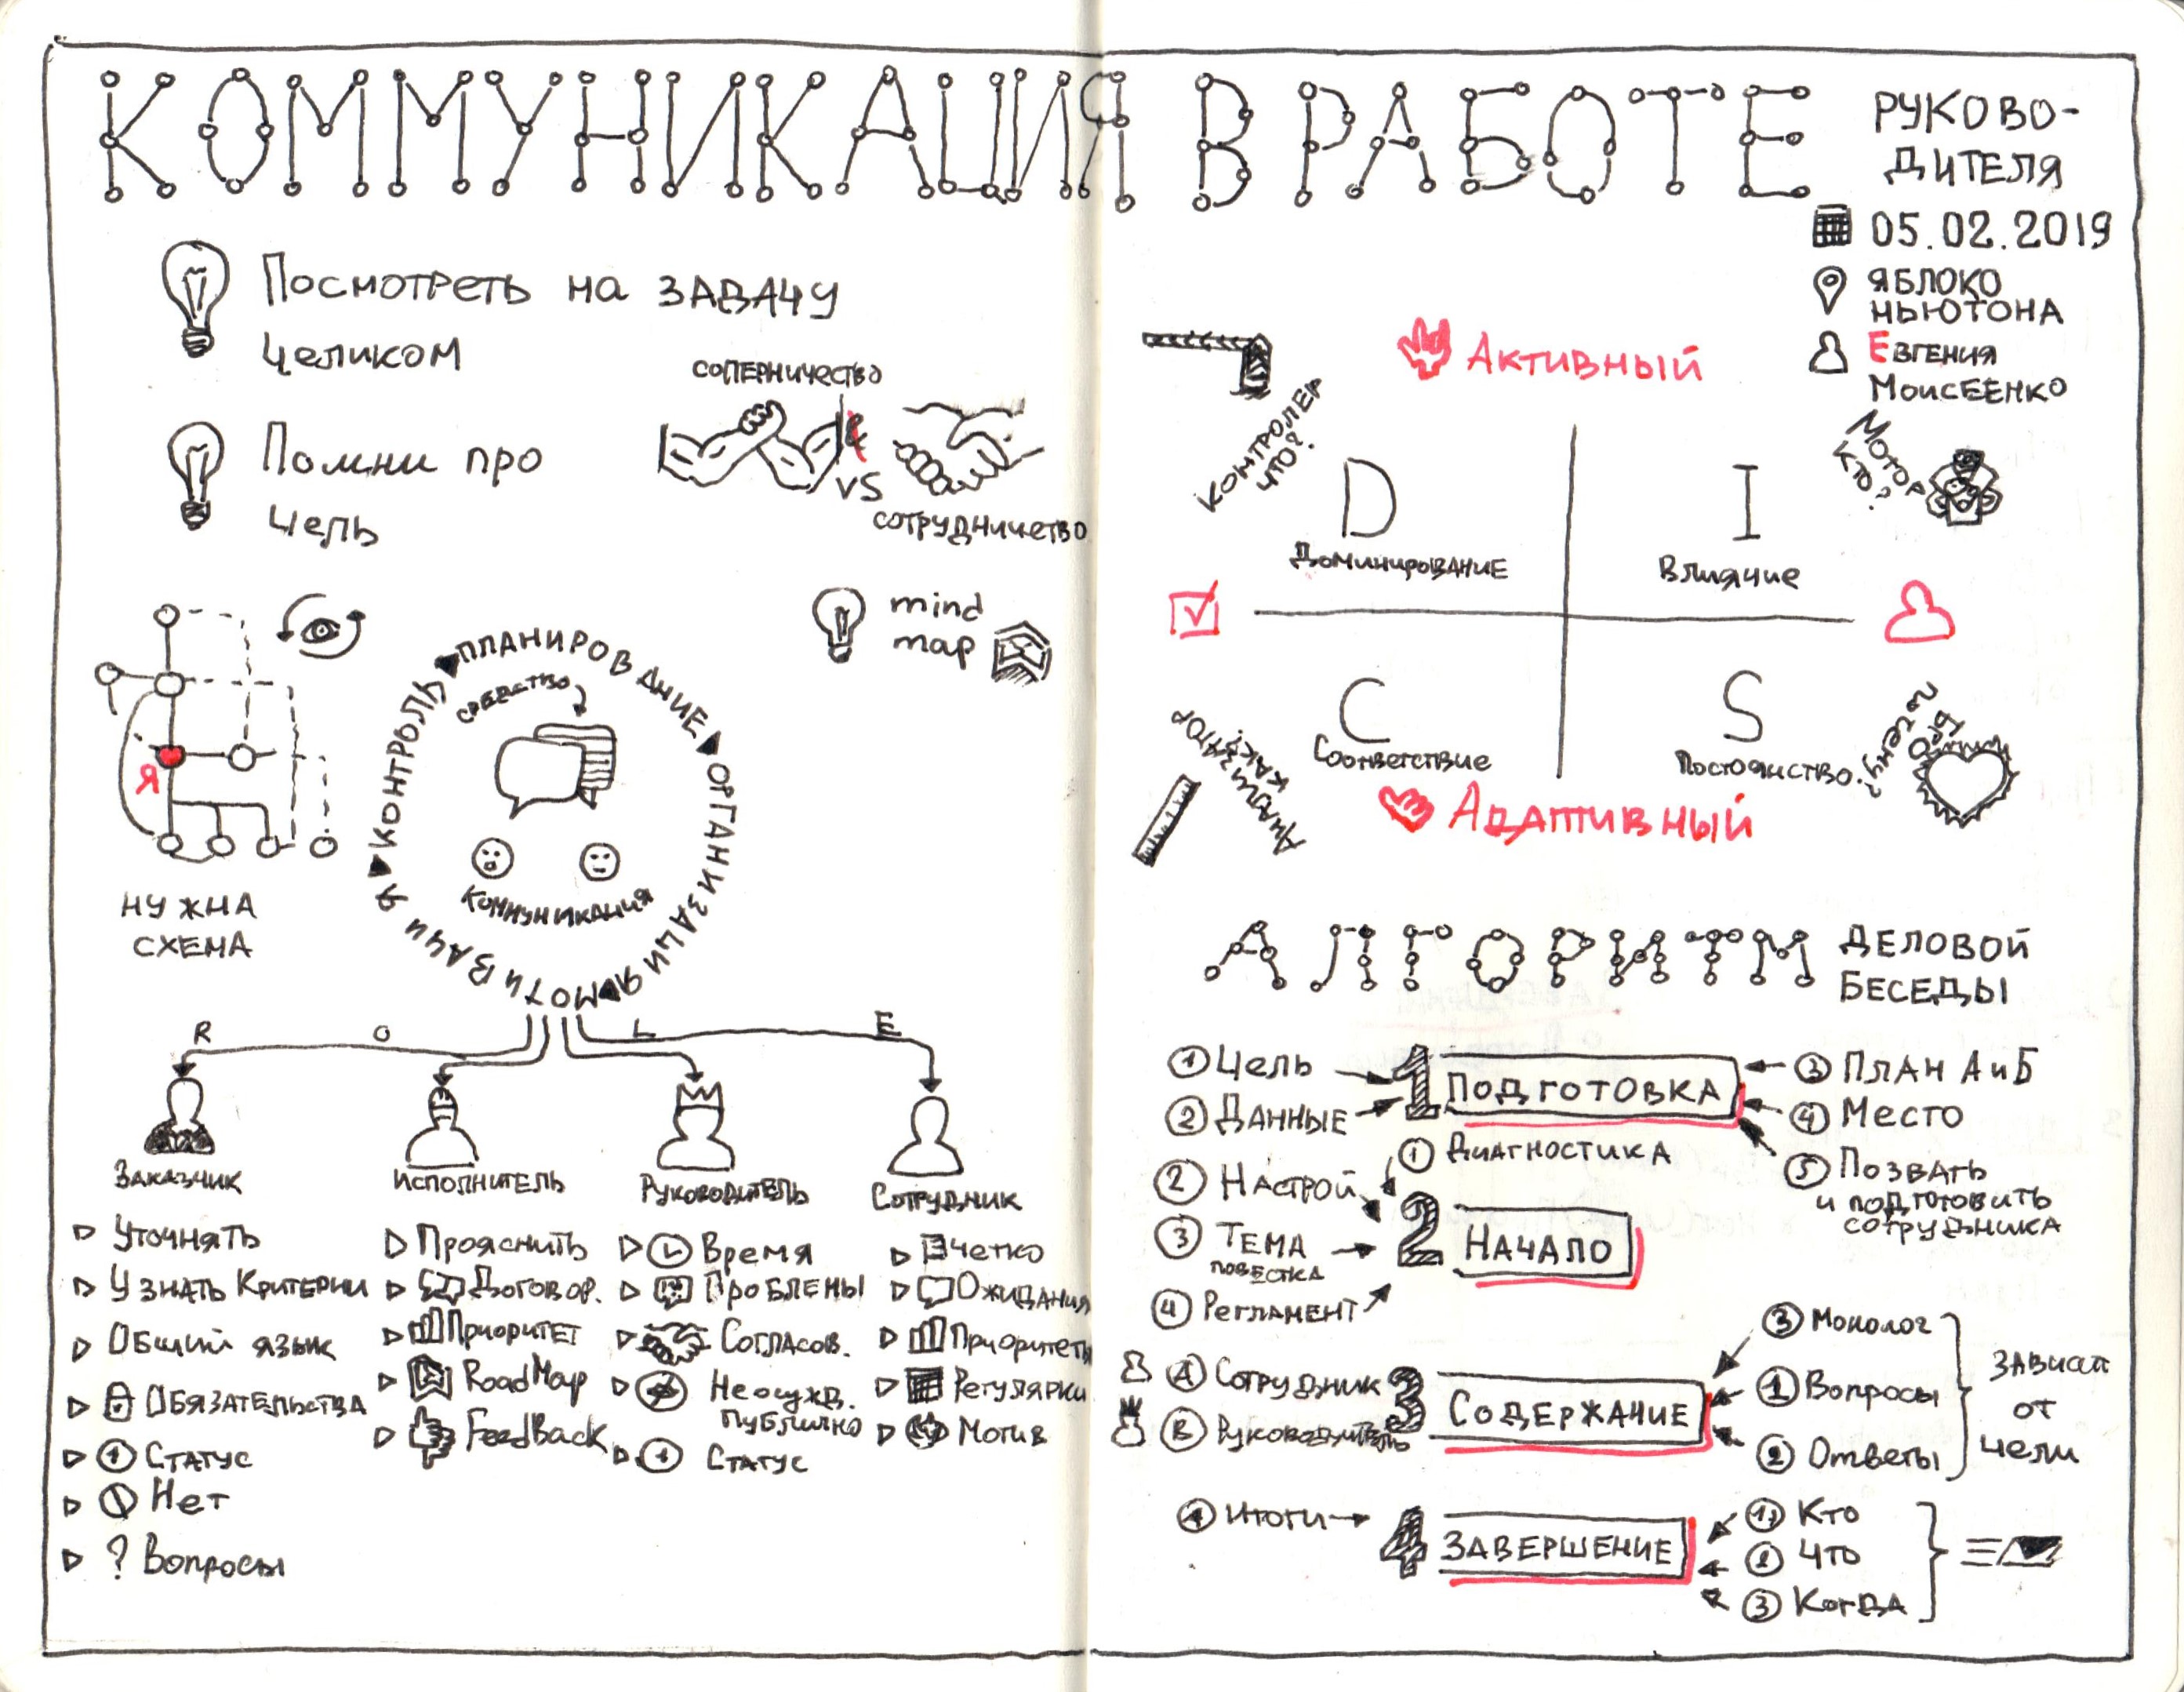 КОММУНИКАЦИЯ В РАБОТЕ
РУКОВО-
ДИТЕЛЯ
05.02.2019
ЯБЛОКО
НЬЮТОНА
ЕВГЕНИЯ
МОИСЕЕНКО
Посмотреть на ЗАДАЧУ
целиком
Помни про
цель
СОПЕРНИЧЕСТВО
VS
СОТРУДНИЧЕТВО
mind
map
Я
НУЖНА
СХЕМА
ПЛАНИРОВАНИЕ
ОРГАНИЗАЦИЯ
МОТИВАЦИЯ
КОНТРОЛЬ
СРЕДСТВО
КОММУНИКАЦИЯ
R O L E
ЗАКАЗЧИК
▷ Уточнять
▷ Узнать Критерии
▷ Общий язык
▷ ОБЯЗАТЕЛЬСТВА
▷ Статус
▷ Нет
▷ ? Вопросы
ИСПОЛНИТЕЛЬ
▷ Прояснить
▷ Договор.
▷ Приоритет
▷ RoadMap
▷ FeedBack
РУКОВОДИТЕЛЬ
▷ Время
▷ Проблемы
▷ Согласов.
▷ Неосужд.
публично
▷ Статус
СОТРУДНИК
▷ Четко
▷ Ожидания
▷ Приоритеты
▷ Регулярки
▷ Мотив
Активный
КОНТРОЛЕР
ЧТО?
МОТОР
КТО?
D
Доминирование
I
Влияние
C
Соответствие
S
Постоянство
АНАЛИЗАТОР
КАК?
зачем?
Адаптивный
АЛГОРИТМ
ДЕЛОВОЙ
БЕСЕДЫ
1 ПОДГОТОВКА
① Цель
② Данные
③ ПЛАН А и Б
④ Место
⑤ Позвать
и подготовить
сотрудника
2 НАЧАЛО
① Диагностика
② Настрой
③ ТЕМА
повестка
④ Регламент
3 СОДЕРЖАНИЕ
Ⓐ Сотрудник
Ⓑ Руководитель
③ Монолог
① Вопросы
② Ответы
ЗАВИСИТ
от
цели
4 ЗАВЕРШЕНИЕ
Итоги
① Кто
② Что
③ Когда